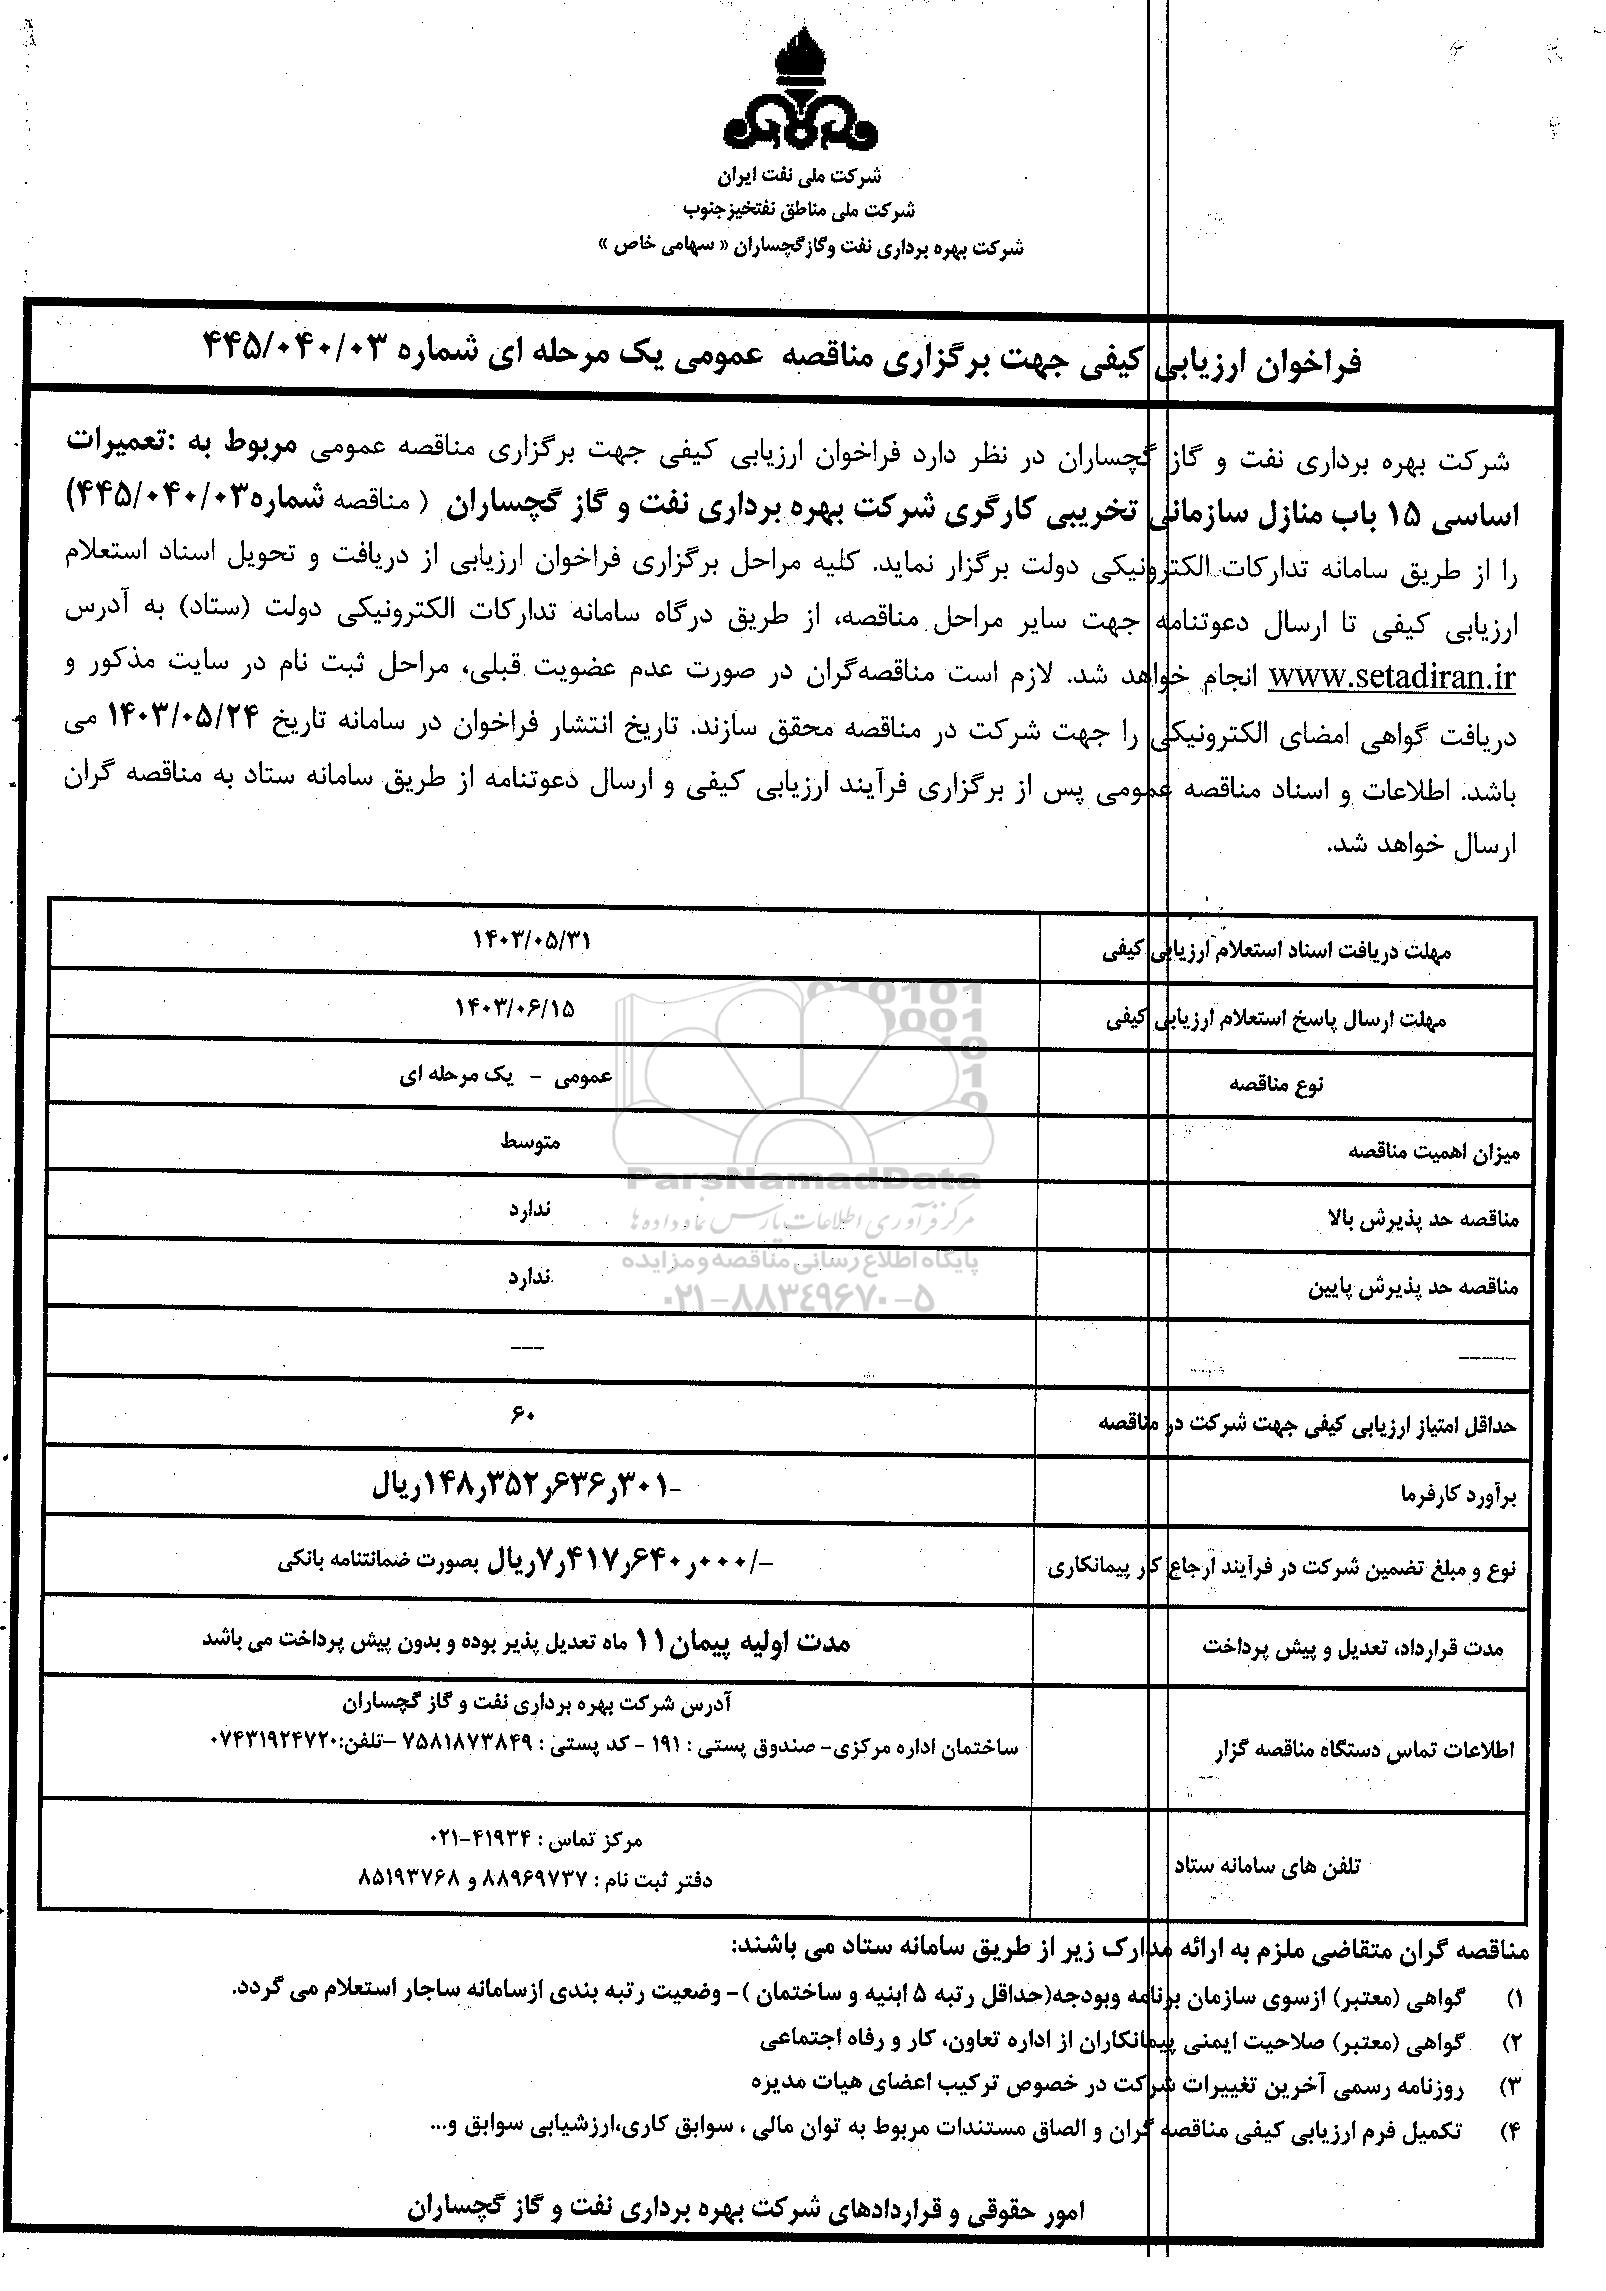 شرکت ملی نفت ایران
شرکت ملی مناطق نفتخیزجنوب
شرکت بهره برداری نفت وگازگچساران « سهامی خاص »
فراخوان ارزیابی کیفی جهت برگزاری مناقصه عمومی یک مرحله ای شماره ۴۴۵/۰۴۰/۰۳
شرکت بهره برداری نفت و گاز گچساران در نظر دارد فراخوان ارزیابی کیفی جهت برگزاری مناقصه عمومی مربوط به :تعمیرات
اساسی ۱۵ باب منازل سازمانی تخریبی کارگری شرکت بهره برداری نفت و گاز گچساران ( مناقصه شماره۴۴۵/۰۴۰/۰۳)
را از طریق سامانه تدارکات الکترونیکی دولت برگزار نماید. کلیه مراحل برگزاری فراخوان ارزیابی از دریافت و تحویل اسناد استعلام
ارزیابی کیفی تا ارسال دعوتنامه جهت سایر مراحل مناقصه، از طریق درگاه سامانه تدارکات الکترونیکی دولت (ستاد) به آدرس
www.setadiran.ir انجام خواهد شد. لازم است مناقصه‌گران در صورت عدم عضویت قبلی، مراحل ثبت نام در سایت مذکور و
دریافت گواهی امضای الکترونیکی را جهت شرکت در مناقصه محقق سازند. تاریخ انتشار فراخوان در سامانه تاریخ ۱۴۰۳/۰۵/۲۴ می
باشد. اطلاعات و اسناد مناقصه عمومی پس از برگزاری فرآیند ارزیابی کیفی و ارسال دعوتنامه از طریق سامانه ستاد به مناقصه گران
ارسال خواهد شد.
مهلت دریافت اسناد استعلام ارزیابی کیفی ۱۴۰۳/۰۵/۳۱
مهلت ارسال پاسخ استعلام ارزیابی کیفی ۱۴۰۳/۰۶/۱۵
نوع مناقصه عمومی - یک مرحله ای
میزان اهمیت مناقصه متوسط
مناقصه حد پذیرش بالا ندارد
مناقصه حد پذیرش پایین ندارد
----- ---
حداقل امتیاز ارزیابی کیفی جهت شرکت در مناقصه ۶۰
برآورد کارفرما ۱۴۸ر۳۵۲ر۶۳۶ر۳۰۱- ریال
نوع و مبلغ تضمین شرکت در فرآیند ارجاع کار پیمانکاری ۷ر۴۱۷ر۶۴۰ر۰۰۰/- ریال بصورت ضمانتنامه بانکی
مدت قرارداد، تعدیل و پیش پرداخت مدت اولیه پیمان۱۱ ماه تعدیل پذیر بوده و بدون پیش پرداخت می باشد
اطلاعات تماس دستگاه مناقصه گزار آدرس شرکت بهره برداری نفت و گاز گچساران
ساختمان اداره مرکزی- صندوق پستی : ۱۹۱ - کد پستی : ۷۵۸۱۸۷۳۸۴۹ –تلفن:۰۷۴۳۱۹۲۴۷۲۰
تلفن های سامانه ستاد مرکز تماس : ۴۱۹۳۴-۰۲۱
دفتر ثبت نام : ۸۸۹۶۹۷۳۷ و ۸۵۱۹۳۷۶۸
مناقصه گران متقاضی ملزم به ارائه مدارک زیر از طریق سامانه ستاد می باشند:
۱) گواهی (معتبر) ازسوی سازمان برنامه وبودجه(حداقل رتبه ۵ ابنیه و ساختمان )- وضعیت رتبه بندی ازسامانه ساجار استعلام می گردد.
۲) گواهی (معتبر) صلاحیت ایمنی پیمانکاران از اداره تعاون، کار و رفاه اجتماعی
۳) روزنامه رسمی آخرین تغییرات شرکت در خصوص ترکیب اعضای هیات مدیره
۴) تکمیل فرم ارزیابی کیفی مناقصه گران و الصاق مستندات مربوط به توان مالی ، سوابق کاری،ارزشیابی سوابق و...
امور حقوقی و قراردادهای شرکت بهره برداری نفت و گاز گچساران
ParsNamadData
مرکز فرآوری اطلاعات پارس نماد داده‌ها
پایگاه اطلاع رسانی مناقصه و مزایده
۰۲۱-۸۸۳۴۹۶۷۰-۵